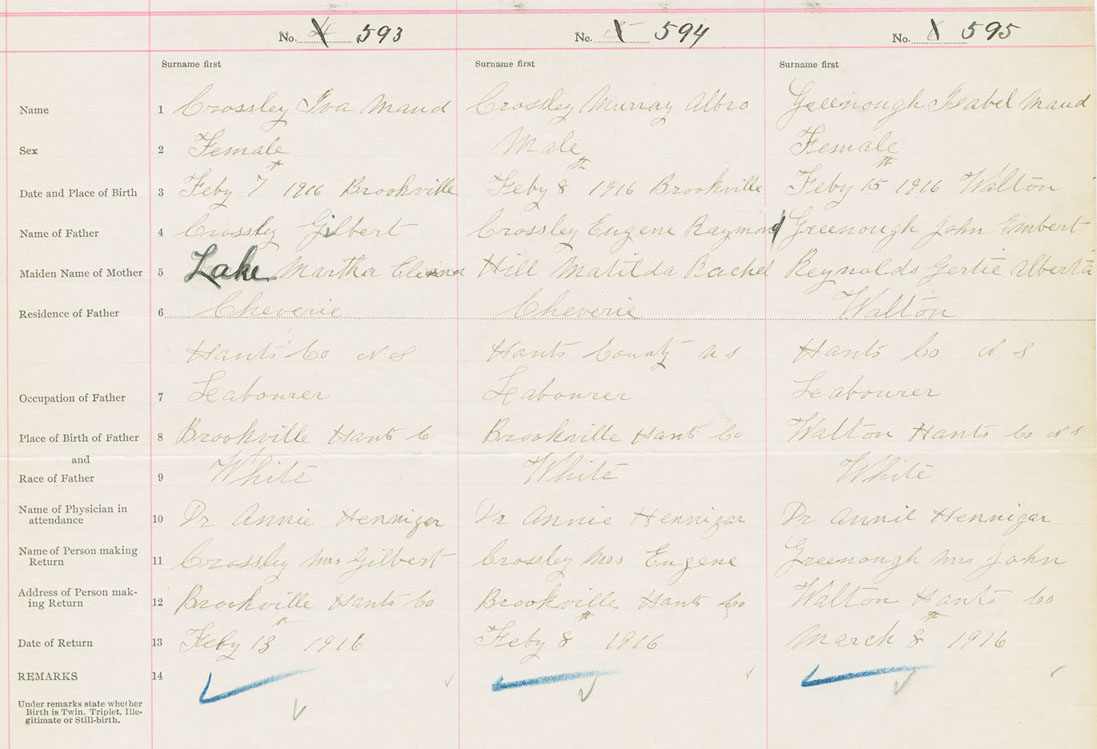 No. 593 No. 594 No. 595
Surname first Surname first Surname first
Name 1 Crossley Iva Maud Crossley Murray Albro Greenough Isabel Maud
Sex 2 Female Male Female
Date and Place of Birth 3 Feby 7th 1916 Brookville Feby 8th 1916 Brookville Feby 15th 1916 Walton
Name of Father 4 Crossley Gilbert Crossley Eugene Raymond Greenough John Embert
Maiden Name of Mother 5 Lake Martha Hill Matilda Rachel Reynolds Gertie Alberta
Residence of Father 6 Cheverie Cheverie Walton
Hants Co N S Hants County N S Hants Co N S
Occupation of Father 7 Labourer Labourer Labourer
Place of Birth of Father 8 Brookville Hants Co Brookville Hants Co Walton Hants Co N S
and
Race of Father 9 White White White
Name of Physician in
attendance 10 Dr Annie Hennigar Dr Annie Hennigar Dr Annie Hennigar
Name of Person making
Return 11 Crossley Mrs Gilbert Crossley Mrs Eugene Greenough Mrs John
Address of Person mak-
ing Return 12 Brookville Hants Co Brookville Hants Co Walton Hants Co
Date of Return 13 Feby 13th 1916 Feby 8th 1916 March 8th 1916
REMARKS 14
Under remarks state whether
Birth is Twin, Triplet, Ille-
gitimate or Still-birth.